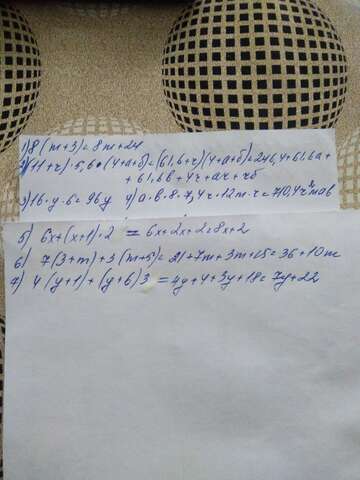 1) 8(m+3)=8m+24
2) (11+r)·5,6•(4+a+б)=(61,6+r)(4+a+б)=246,4+61,6a+
+61,6б+4r+ar+rб
3) 16·y·6=96y 4) a·в·8·7,4r·12m·r=710,4r²maв
5) 6x+(x+1)·2 =6x+2x+2=8x+2
6) 7(3+m)+3(m+5)=21+7m+3m+15=36+10m
7) 4(y+1)+(y+6)3 =4y+4+3y+18=7y+22